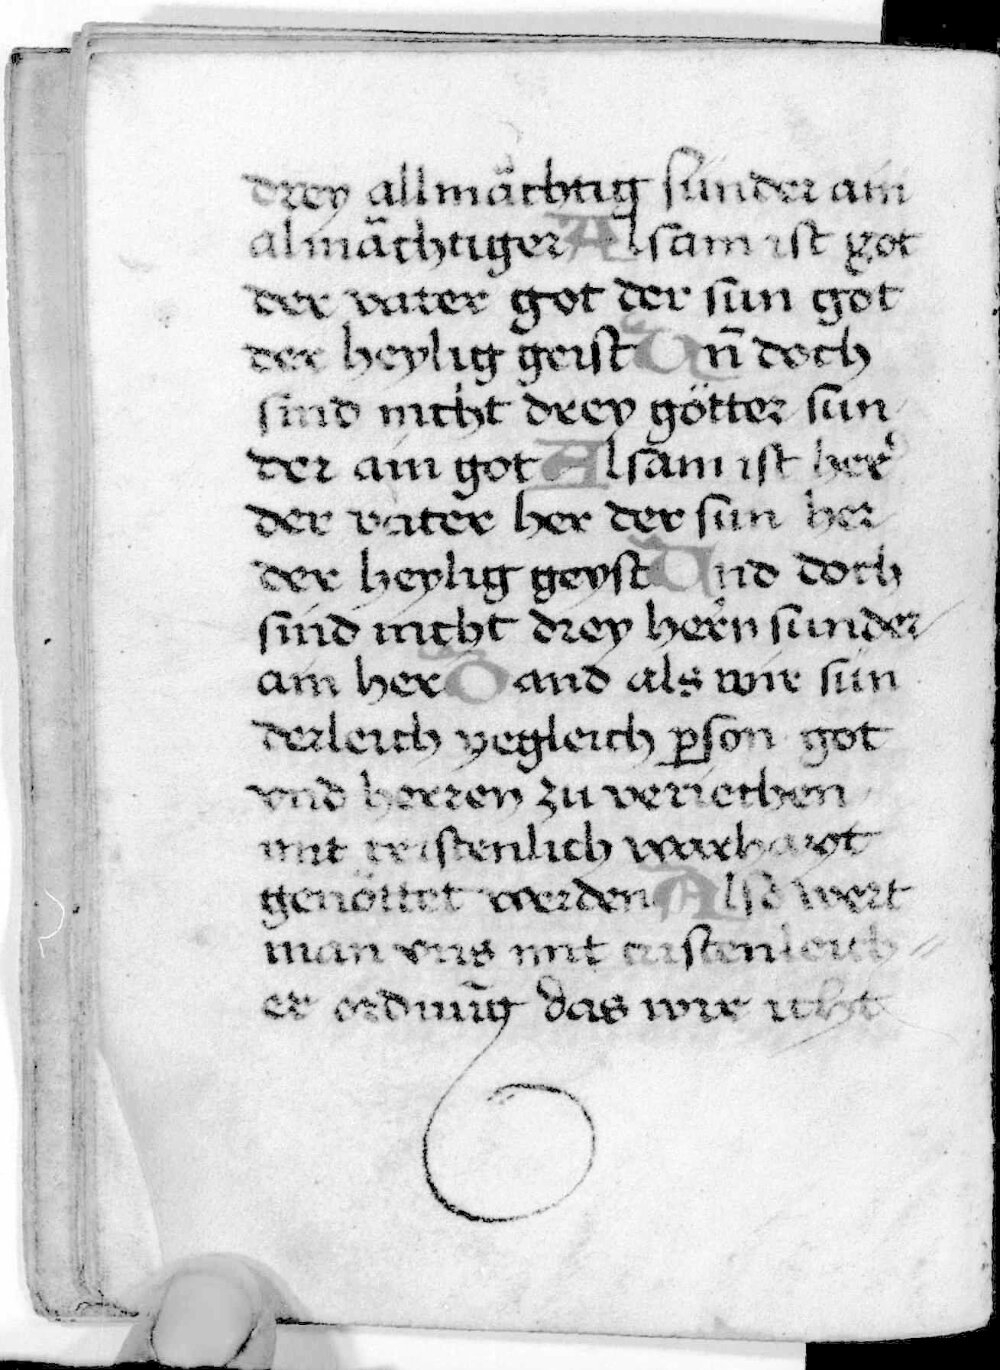 drey allmächtig sunder ain
almächtiger Alsam ist got
der vater got der sun got
der heylig geist Vn̄ doch
sind nicht drey götter sun
der ain got Alsam ist her
der vater her der sun her
der heylig geyst Und doch
sind nicht drey hern sunder
ain her Wand als wir sün
derleich yegleich pson got
vnd herren zu veriechen
mit cristenlich warhayt
genöttet werden Also wert
man vns mit cristenleich
er ordnūg das wir icht